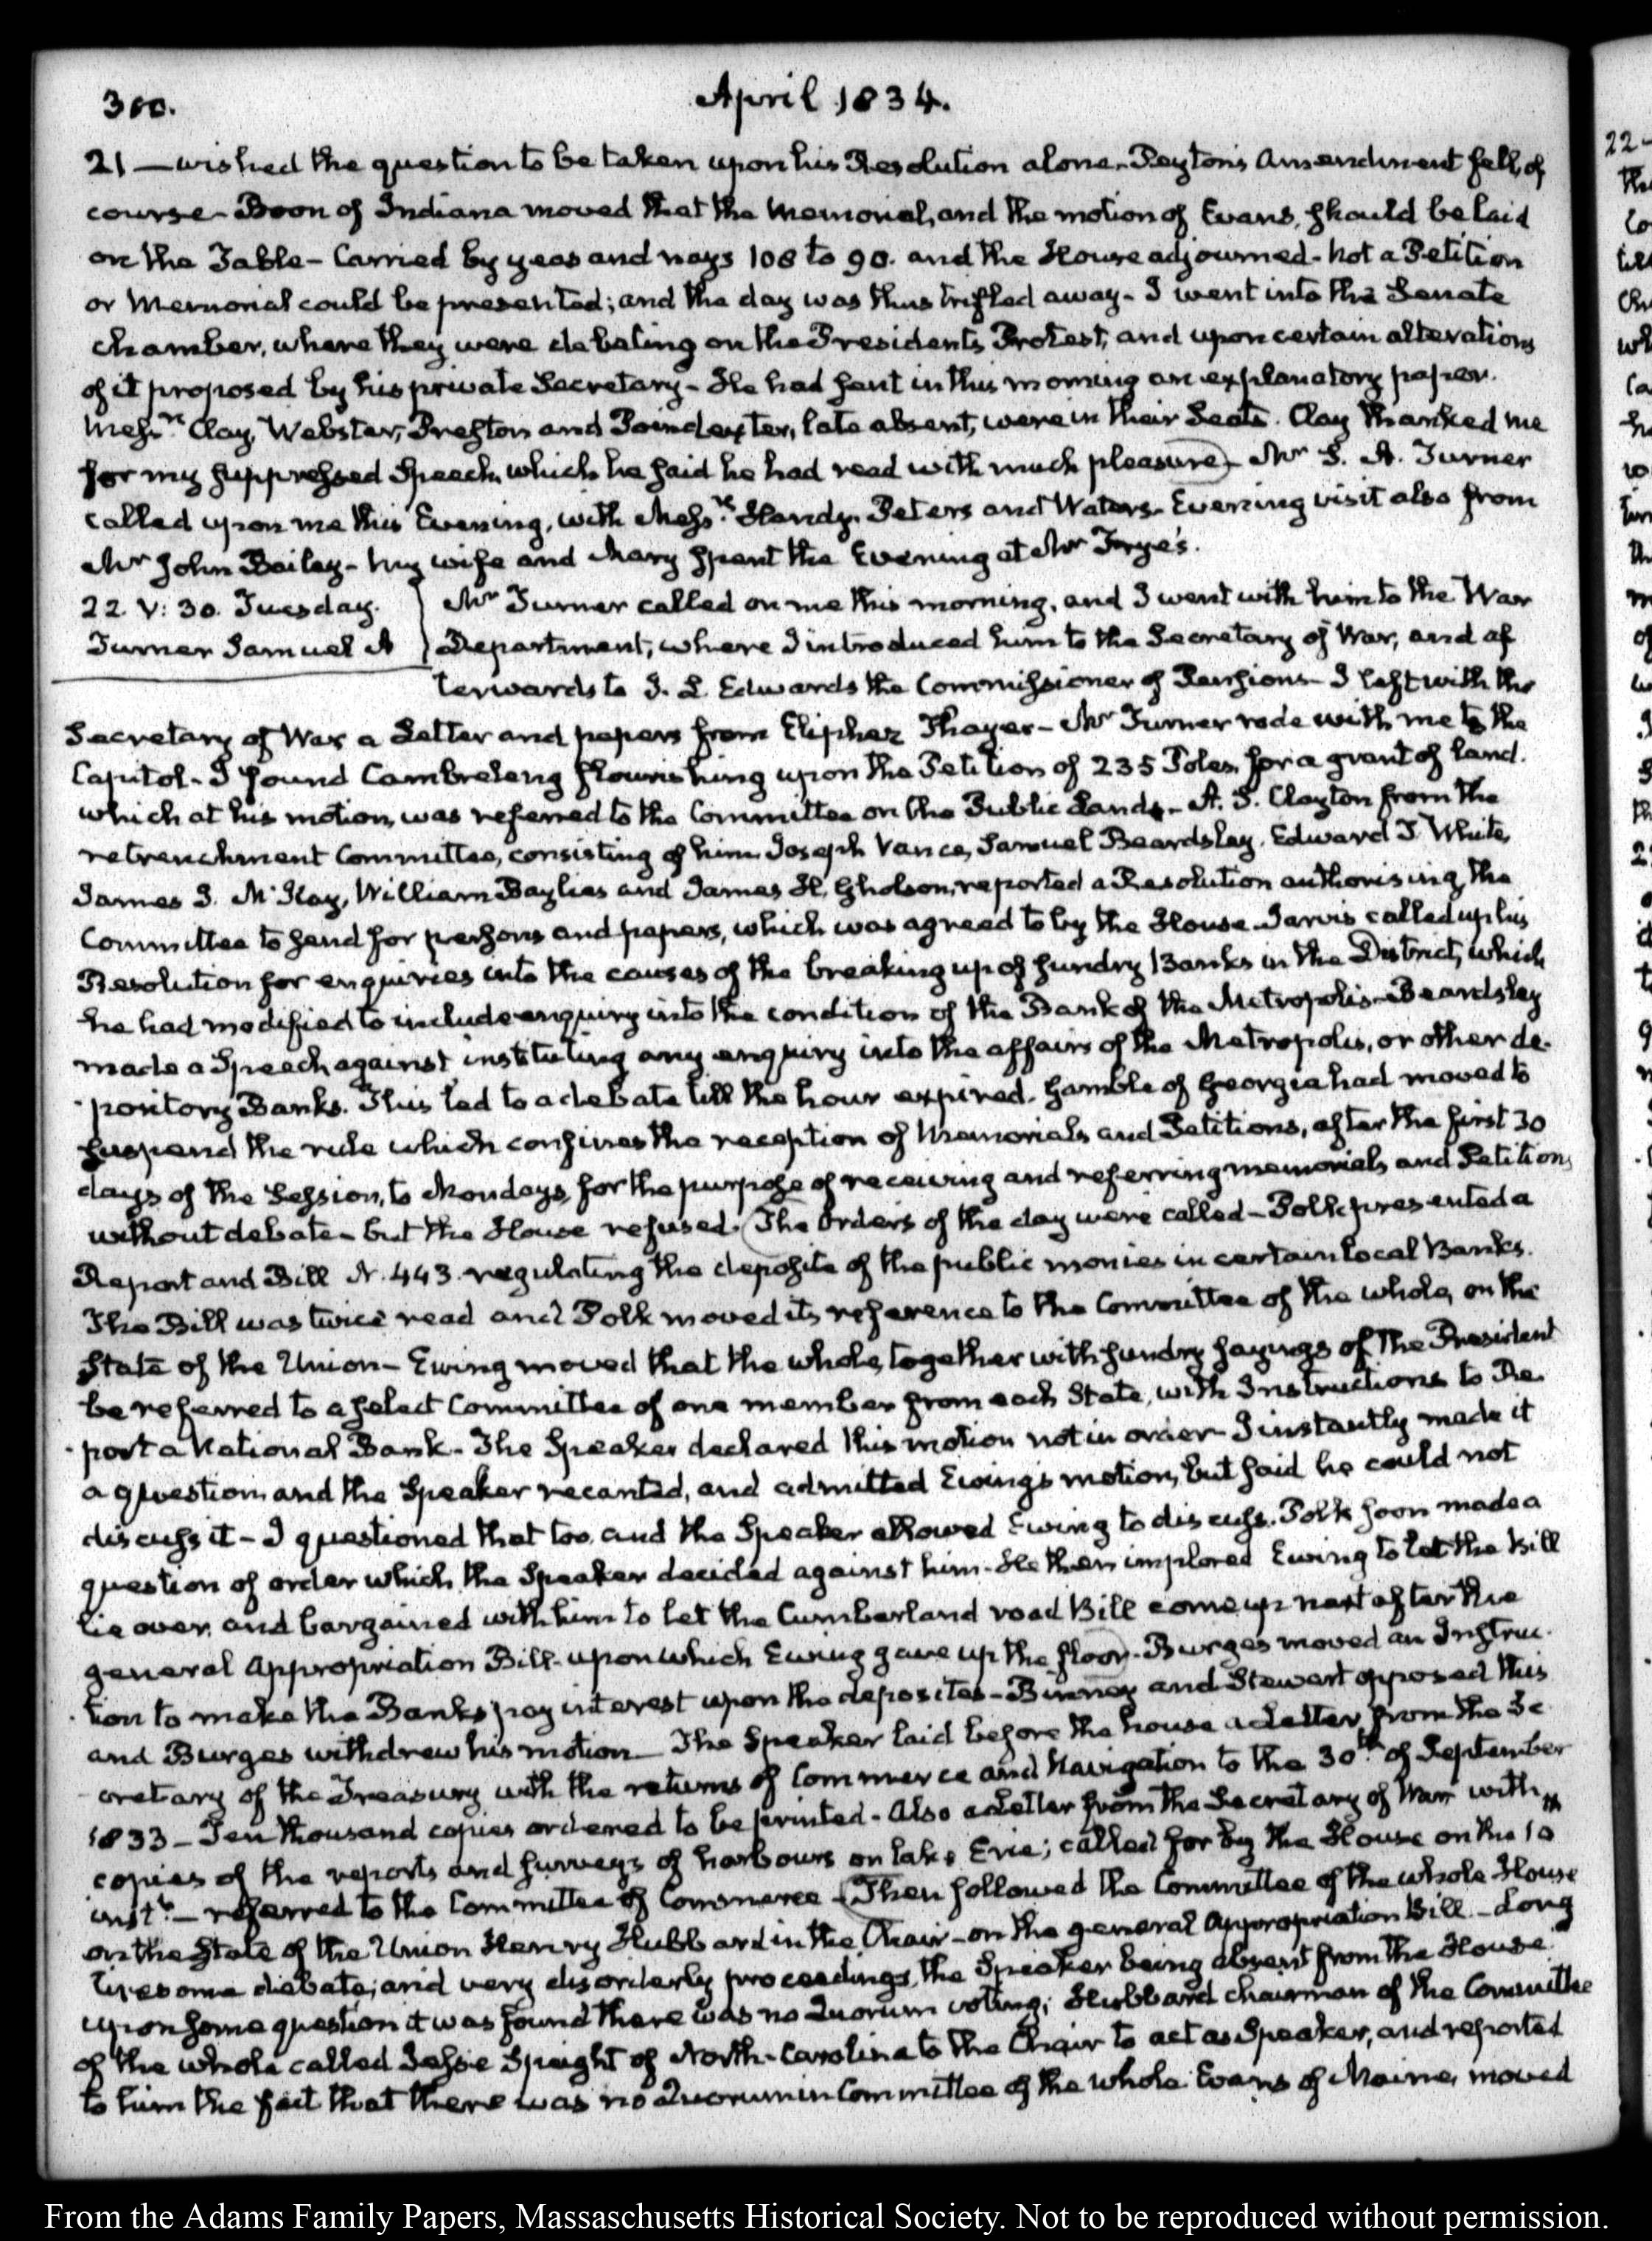 300.
April 1834.
21 — wished the question to be taken upon his Resolution alone. Peyton's Amendment fell, of
course. Boon of Indiana moved that the Memorial, and the motion of Evans, should be laid
on the Table - Carried by yeas and nays 108 to 90. and the House adjourned - Not a Petition
or Memorial could be presented; and the day was thus trifled away - I went into the Senate
chamber, where they were debating on the President's Protest, and upon certain alterations
of it proposed by his private Secretary - He had sent in this morning an explanatory paper.
Messrs. Clay, Webster, Preston and Poindexter, late absent, were in their Seats. Clay thanked me
for my suppressed Speech, which he said he had read with much pleasure - Mr S. A. Turner
called upon me this Evening, with Messrs. Handy, Peters and Waters. Evening visit also from
Mr John Bailey - My wife and Mary spent the Evening at Mr Frye's.
22. V: 30. Tuesday.
Turner Samuel A
Mr Turner called on me this morning, and I went with him to the War
Department, where I introduced him to the Secretary of War, and af
terwards to J. L. Edwards the Commissioner of Pensions - I left with the
Secretary of War a Letter and papers from Eliphaz Thayer - Mr Turner rode with me to the
Capitol - I found Cambreleng flourishing upon the Petition of 235 Poles, for a grant of land.
which at his motion, was referred to the Committee on the Public Lands - A. S. Clayton from the
retrenchment Committee, consisting of him, Joseph Vance, Samuel Beardsley, Edward D. White,
James I. McKay, William Baylies and James H. Gholson, reported a Resolution authorising the
Committee to send for persons and papers, which was agreed to by the House. Jarvis called up his
Resolution for enquiries into the causes of the breaking up of sundry Banks in the District, which
he had modified to include enquiry into the condition of the Bank of the Metropolis - Beardsley
made a Speech against instituting any enquiry into the affairs of the Metropolis, or other de-
pository Banks. This led to a debate till the hour expired. Gamble of Georgia had moved to
suspend the rule which confines the reception of Memorials and Petitions, after the first 30
days of the Session, to Mondays, for the purpose of receiving and referring memorials and Petitions
without debate - but the House refused. The Orders of the day were called - Polk presented a
Report and Bill N. 443. regulating the deposite of the public monies in certain local Banks.
The Bill was twice read and Polk moved its reference to the Committee of the whole, on the
State of the Union - Ewing moved that the whole, together with sundry sayings of the President
be referred to a select Committee of one member from each State, with Instructions to Re-
port a National Bank - The Speaker declared this motion not in order - I instantly made it
a question, and the Speaker recanted, and admitted Ewing's motion, but said he could not
discuss it - I questioned that too, and the Speaker allowed Ewing to discuss. Polk soon made a
question of order which the Speaker decided against him - He then implored Ewing to let the bill
lie over, and bargained with him to let the Cumberland road Bill come up next after the
general Appropriation Bill - upon which Ewing gave up the floor - Burges moved an Instruc-
tion to make the Banks pay interest upon the deposites - Binney and Stewart opposed this
and Burges withdrew his motion - The Speaker laid before the house a Letter from the Se
cretary of the Treasury with the returns of Commerce and Navigation to the 30th. of September
1833 - Ten thousand copies ordered to be printed - Also a Letter from the Secretary of War with
copies of the reports and surveys of harbours on lake Erie; called for by the House on the 10th
inst. - referred to the Committee of Commerce - Then followed the Committee of the whole House
on the State of the Union Henry Hubbard in the Chair - on the general Appropriation Bill - Long
tiresome debate, and very disorderly proceedings, the Speaker being absent from the House
upon some question it was found there was no Quorum voting; Hubbard chairman of the Committee
of the whole called Jesse Speight of North-Carolina to the Chair to act as Speaker, and reported
to him the fact that there was no Quorum in Committee of the whole. Evans of Maine, moved
From the Adams Family Papers, Massachusetts Historical Society. Not to be reproduced without permission.